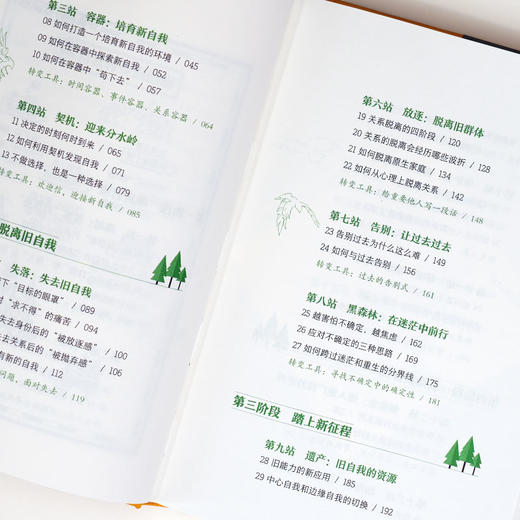 第三站 容器：培育新自我
08 如何打造一个培育新自我的环境 / 045
09 如何在容器中探索新自我 / 052
10 如何在容器中“苟下去” / 057
转变工具：时间容器、事件容器、关系容器 / 064
第四站 契机：迎来分水岭
11 决定的时刻何时到来 / 065
12 如何利用契机发现自我 / 071
13 不做选择，也是一种选择 / 079
转变工具：欢迎信，迎接新自我 / 085
脱离旧自我
失落：失去旧自我
下“目标的眼罩” / 089
“求不得”的痛苦 / 094
失去身份后的“被放逐感” / 100
去关系后的“被抛弃感” / 106
育新的自我 / 112
问题，面对失去 / 119
第六站 放逐：脱离旧群体
19 关系脱离的四阶段 / 120
20 关系的脱离会经历哪些波折 / 128
21 如何脱离原生家庭 / 134
22 如何从心理上脱离关系 / 142
转变工具：给重要他人写一段证 / 148
第七站 告别：让过去过去
23 告别过去为什么这么难 / 149
24 如何与过去告别 / 156
转变工具：过去的告别式 / 161
第八站 黑森林：在迷茫中前行
25 越害怕不确定，越焦虑 / 162
26 应对不确定的三种思路 / 169
27 如何跨过迷茫和重生的分界线 / 175
转变工具：寻找不确定中的确定性 / 181
第三阶段 踏上新征程
第九站 遗产：旧自我的资源
28 旧能力的新应用 / 185
29 中心自我和边缘自我的切换 / 192